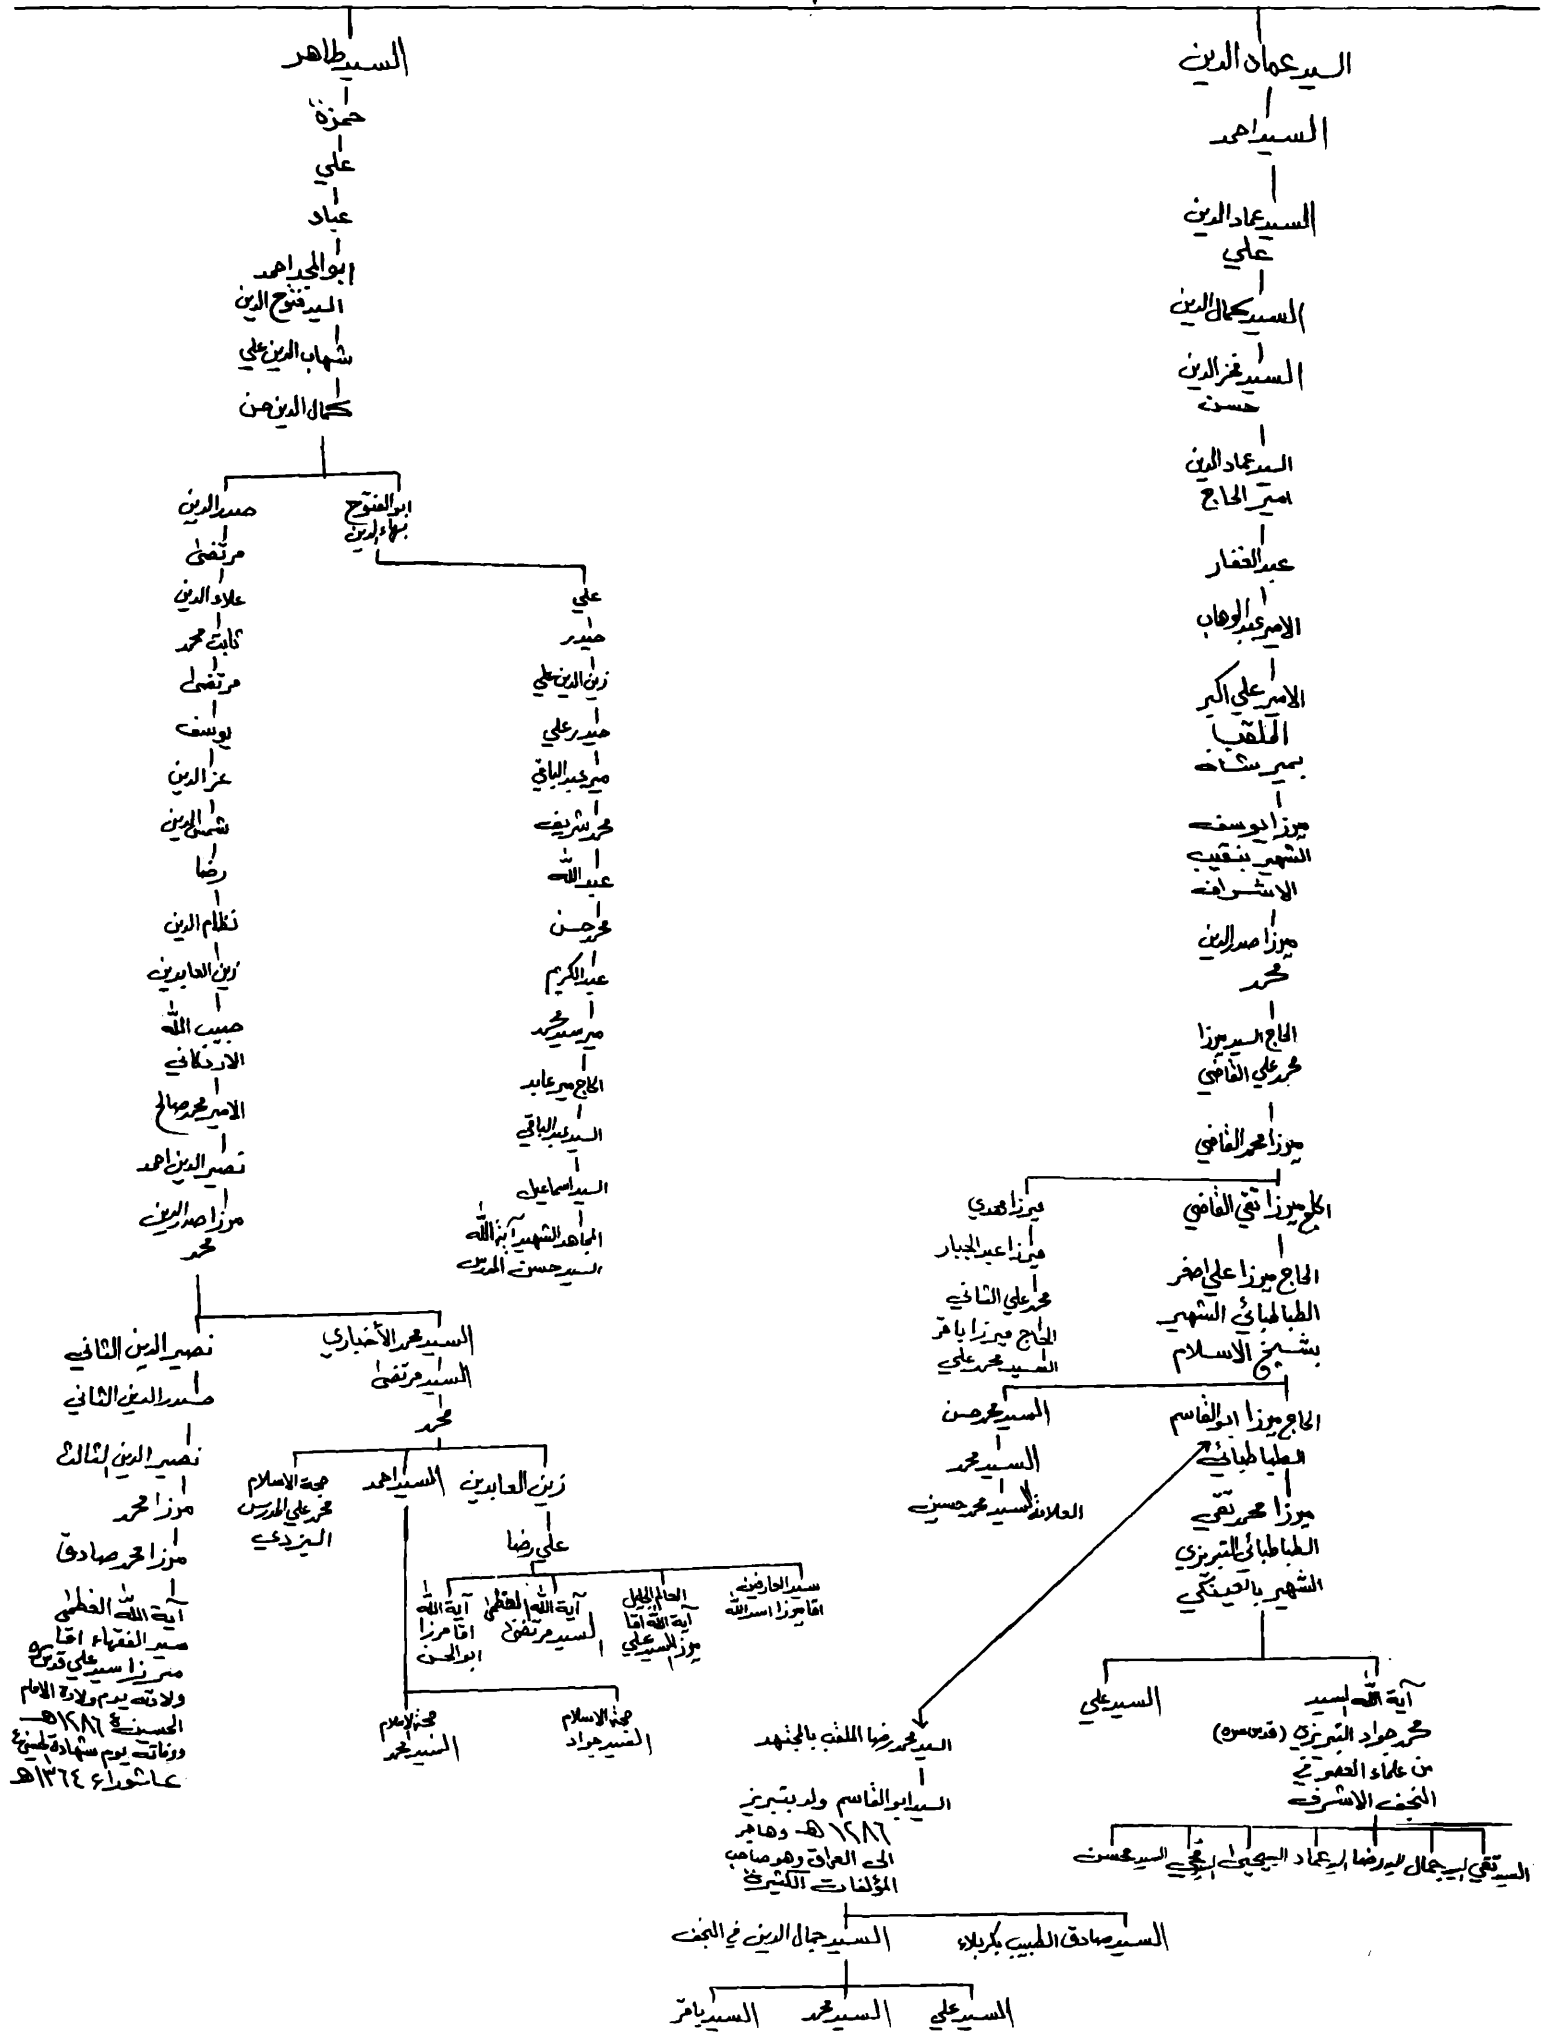 السيد عماد الدين
السيد احمد
السيد عماد الدين
علي
السيد كمال الدين
السيد فخر الدين
حسن
السيد عماد الدين
امير الحاج
عبد الغفار
الامير عبد الوهاب
الامير علي اكبر
الملقب
بمير شاه
ميرزا يوسف
الشهير بنقيب
الاشراف
ميرزا صدر الدين
محمد
الحاج السيد ميرزا
محمد علي القاضي
ميرزا محمد القاضي
الحاج ميرزا تقي القاضي
الحاج ميرزا علي اصغر
الطباطبائي الشهير
بشيخ الاسلام
الحاج ميرزا ابو القاسم
الطباطبائي
ميرزا محمد تقي
الطباطبائي التبريزي
الشهير بالعينكي
آية الله السيد
محمد جواد التبريزي (قدس سره)
من علماء العصر في
النجف الاشرف
السيد تقي السيد جمال السيد رضا السيد عماد السيد يحيى السيد محسن
السيد علي
ميرزا مهدي
ميرزا عبد الجبار
محمد علي الثاني
الحاج ميرزا باقر
السيد محمد علي
السيد محمد حسن
السيد محمد
العلامة السيد محمد حسين
السيد محمد رضا الملقب بالمجتهد
السيد ابو القاسم ولد بتبريز
١٢٨٦ هـ وهاجر
الى العراق وهو صاحب
المؤلفات الكثيرة
السيد صادق الطبيب بكربلاء
السيد جمال الدين في النجف
السيد علي
السيد محمد
السيد باقر
السيد طاهر
حمزة
علي
عباد
ابو المجد احمد
السيد فتوح الدين
شهاب الدين علي
كمال الدين حسن
ابو الفتوح
بهاء الدين
علي
حيدر
زين الدين علي
حيدر علي
مير عبد الباقي
محمد شريف
عبد الله
محمد حسن
عبد الكريم
مير سيد محمد
الحاج مير عابد
السيد عبد الباقي
السيد اسماعيل
المجاهد الشهيد آية الله
السيد حسن المدرس
صدر الدين
مرتضى
علاء الدين
ثابت محمد
مرتضى
يوسف
عز الدين
شمس الدين
رضا
نظام الدين
زين العابدين
حبيب الله
الاردكاني
الامير محمد صالح
نصير الدين احمد
ميرزا صدر الدين
محمد
السيد محمد الأخباري
السيد مرتضى
محمد
زين العابدين
علي رضا
سيد العارفين
اقا ميرزا اسد الله
العالم الجليل
آية الله اقا
ميرزا السيد علي
آية الله العظمى
السيد مرتضى
آية الله
اقا مرزا
ابو الحسن
السيد احمد
حجة الاسلام
السيد جواد
حجة الاسلام
السيد محمد
حجة الاسلام
محمد علي المدرس
اليزدي
نصير الدين الثاني
صدر الدين الثاني
نصير الدين الثالث
ميرزا محمد
ميرزا محمد صادق
آية الله العظمى
سيد الفقهاء اقا
ميرزا سيد علي قدس سره
ولادته يوم ولادة الامام
الحسين ع ١٢٨٦ هـ
ووفاته يوم شهادة الحسين ع
عاشوراء ١٣٦٤ هـ